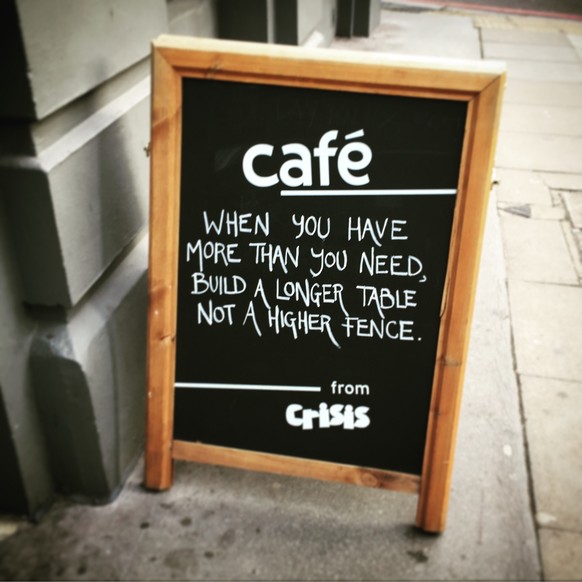 café
WHEN YOU HAVE
MORE THAN YOU NEED,
BUILD A LONGER TABLE
NOT A HIGHER FENCE.
from
crisis